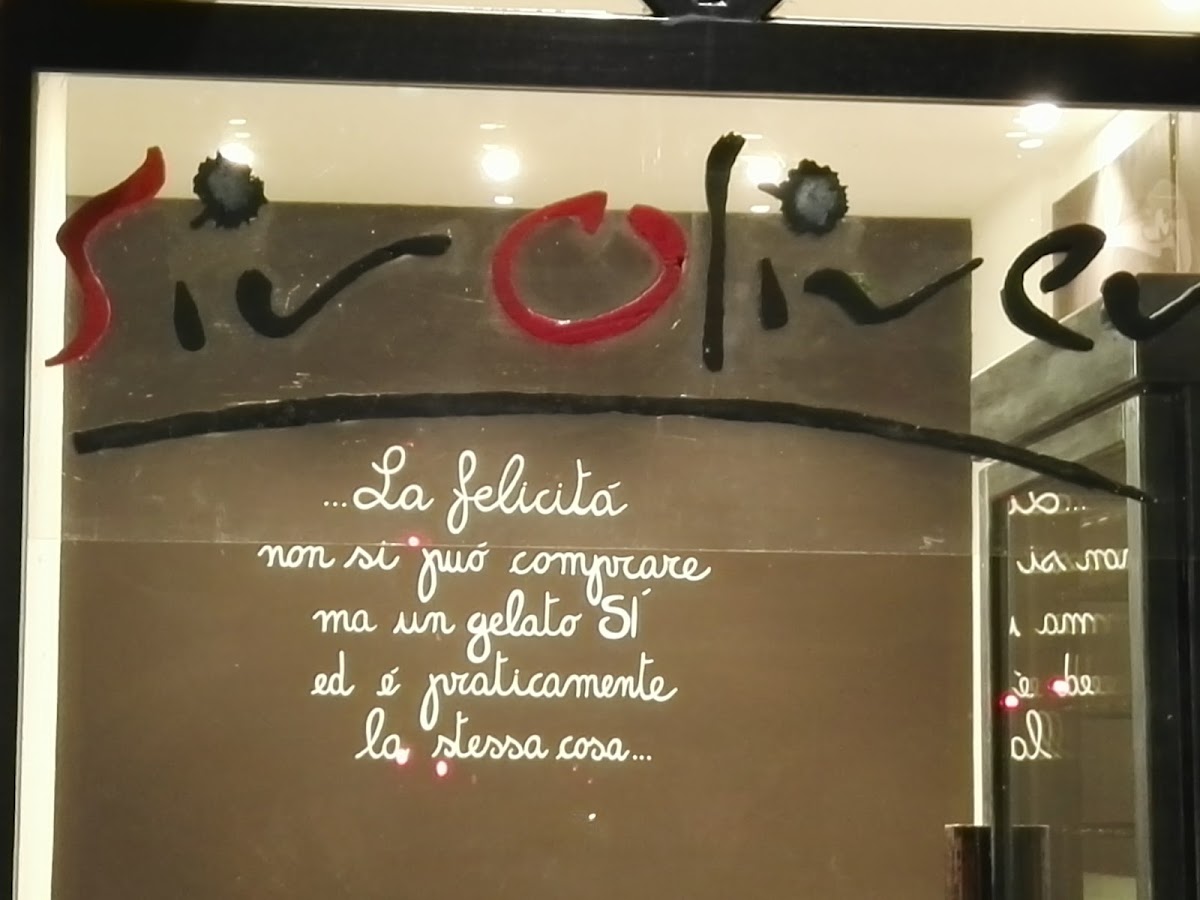 Sir Oliver
...La felicitá
non si puó comprare
ma un gelato SÍ
ed é praticamente
la stessa cosa...